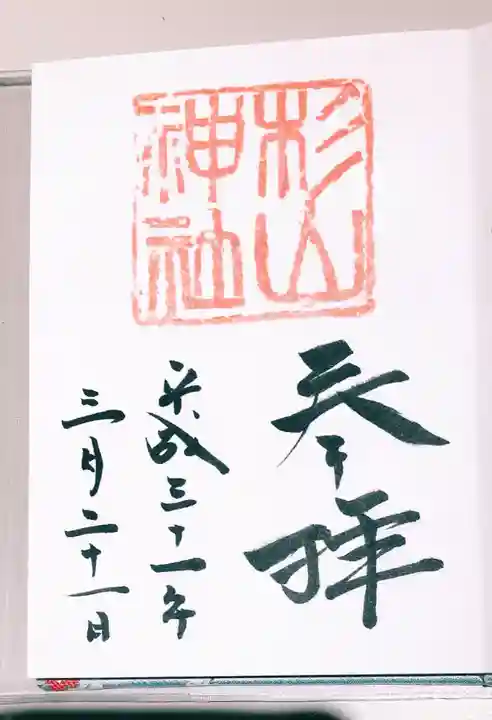 杉山
神社
参拝
平成三十一年
三月二十一日